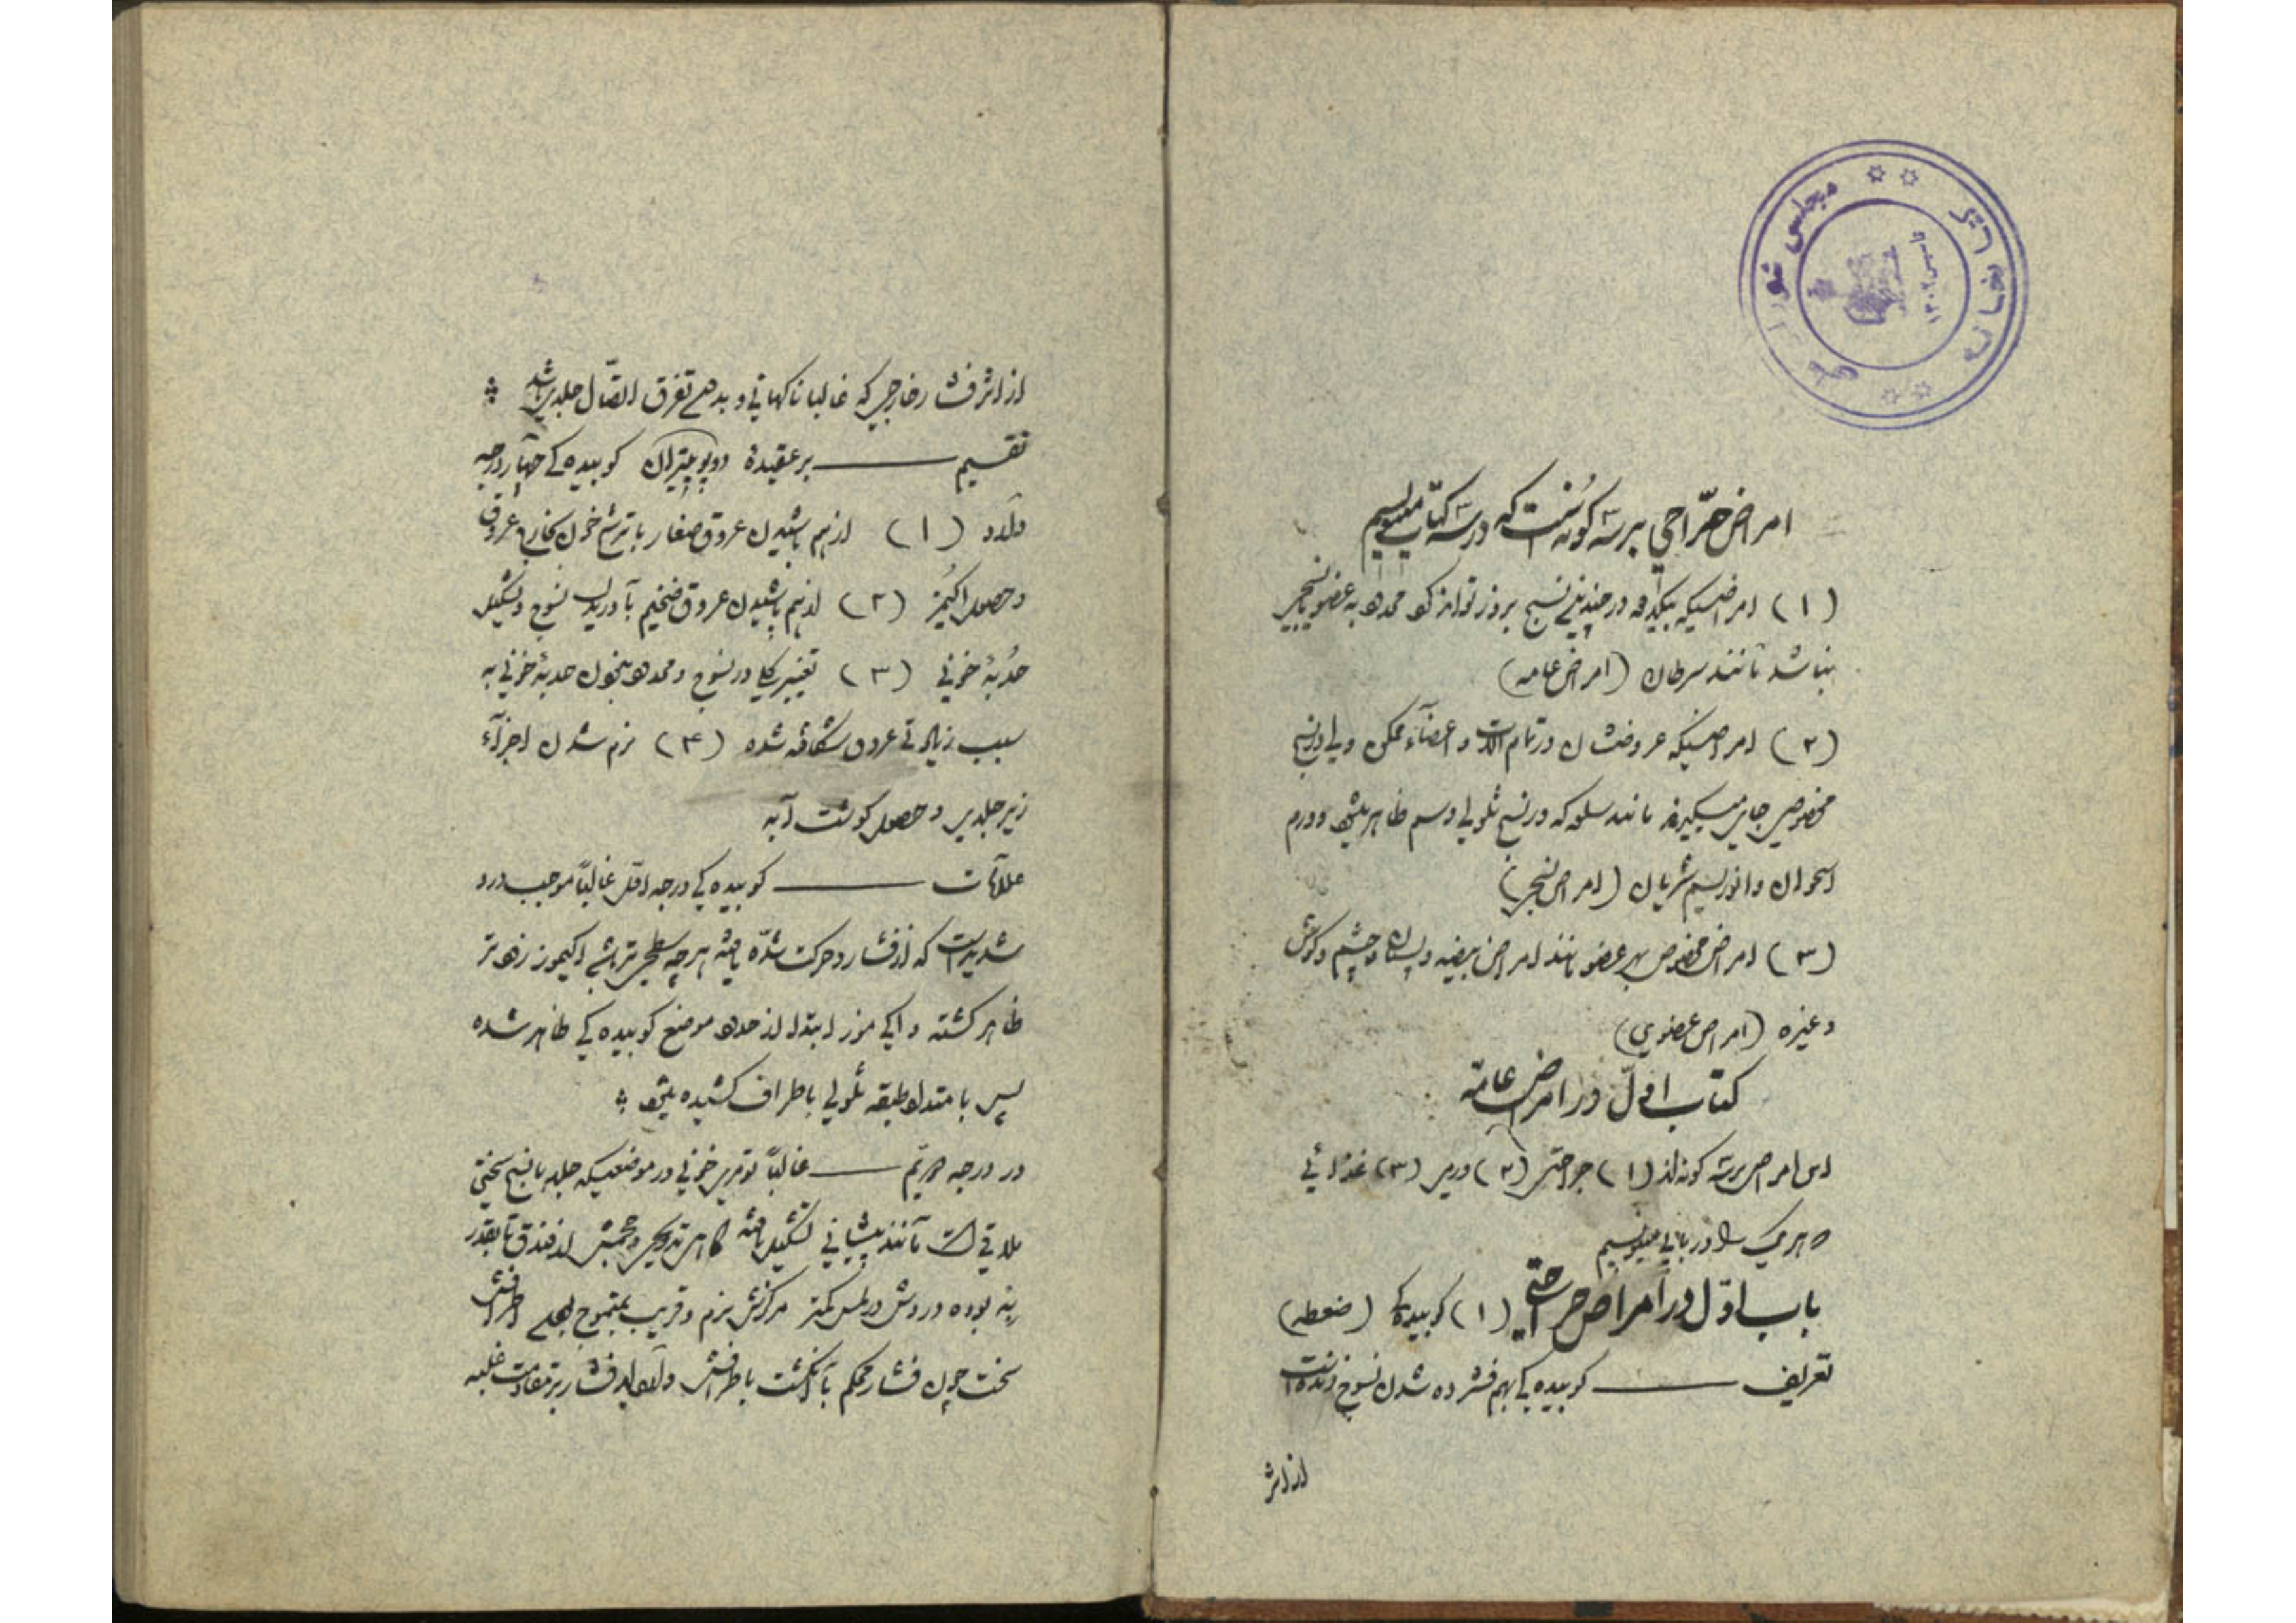 کتابخانه مجلس شورای ملی
تاسیس ۱۳۰۲
امراض جرّاحی بر سه گونه است که در سه کتاب مینویسیم
(۱) امراضیکه بیکدفعه در چندین نسج بروز تواند کرد و محدود به عضو یا نسجی
نباشد مانند سرطان (امراض عامه)
(۲) امراضیکه عروضشان در تمام آلات و اعضآء ممکن ولی در نسج
مخصوصی جای میگیرند مانند سلعه که در نسج سلولی و سم ظاهر میشود و ورم
استخوان و انوریسم شریان (امراض نسجی)
(۳) امراض مخصوص بهر عضو مانند امراض بیضه و پستان و چشم و گوش
و غیره (امراض عضوی)
کتاب اوّل در امراض عامّه
این امراض بر سه گونه اند (۱) جراحتی (۲) ورمی (۳) غذائی
و هر یک را در بابی مینویسیم
باب اوّل در امراض جراحتی (۱) کوبیدگی (ضغطه)
تعریف ــــ کوبیدگی بهم فشرده شدن نسوج زنده است
از اثر
از اثر فشار خارجی که غالبا ناگهانی و بدون تفرق اتصّال جلدی باشد
تقسیم ــــ بر عقیدۀ دوپویتران کوبیدگی چهار درجه
دارد (۱) از هم پاشیدن عروق صغار با ترشح خون بخارج عروق
و حصول اکیمز (۲) از هم پاشیدن عروق ضخیم با دریدن نسوج و تشکیل
حُدبۀ خونی (۳) تغییر کلی در نسوج و محدود نبودن حدبۀ خونی به
سبب زیادتی عروق شکافته شده (۴) نرم شدن اجزآء
زیر جلدی و حصول گوشت آبه
علامات ــــ کوبیدگی درجه اوّل غالباً موجب درد
شدیدیست که از فشار و حرکت شدّت یافته هر چه سطحی تر باشد اکیموز زودتر
ظاهر گشته و اکیموز ابتدا از حدود موضع کوبیدگی ظاهر شده
پس با متداد طبقه سلولی باطراف کشیده میشود
در درجه دویّم ــــ غالباً تومری خونی در موضعیکه جلد با نسج سختی
ملاقی است مانند پیشانی تشکیل یافته گاهی تدریجی و حجمش از فندق تا بقدر
به بوده و دردش در لمس کمتر مرکزش نرم و قریب بتموج بوده اطرافش
سخت چون فشار محکم با انگشت باطرافش وارد آید فشار بر مقاومت غلبه